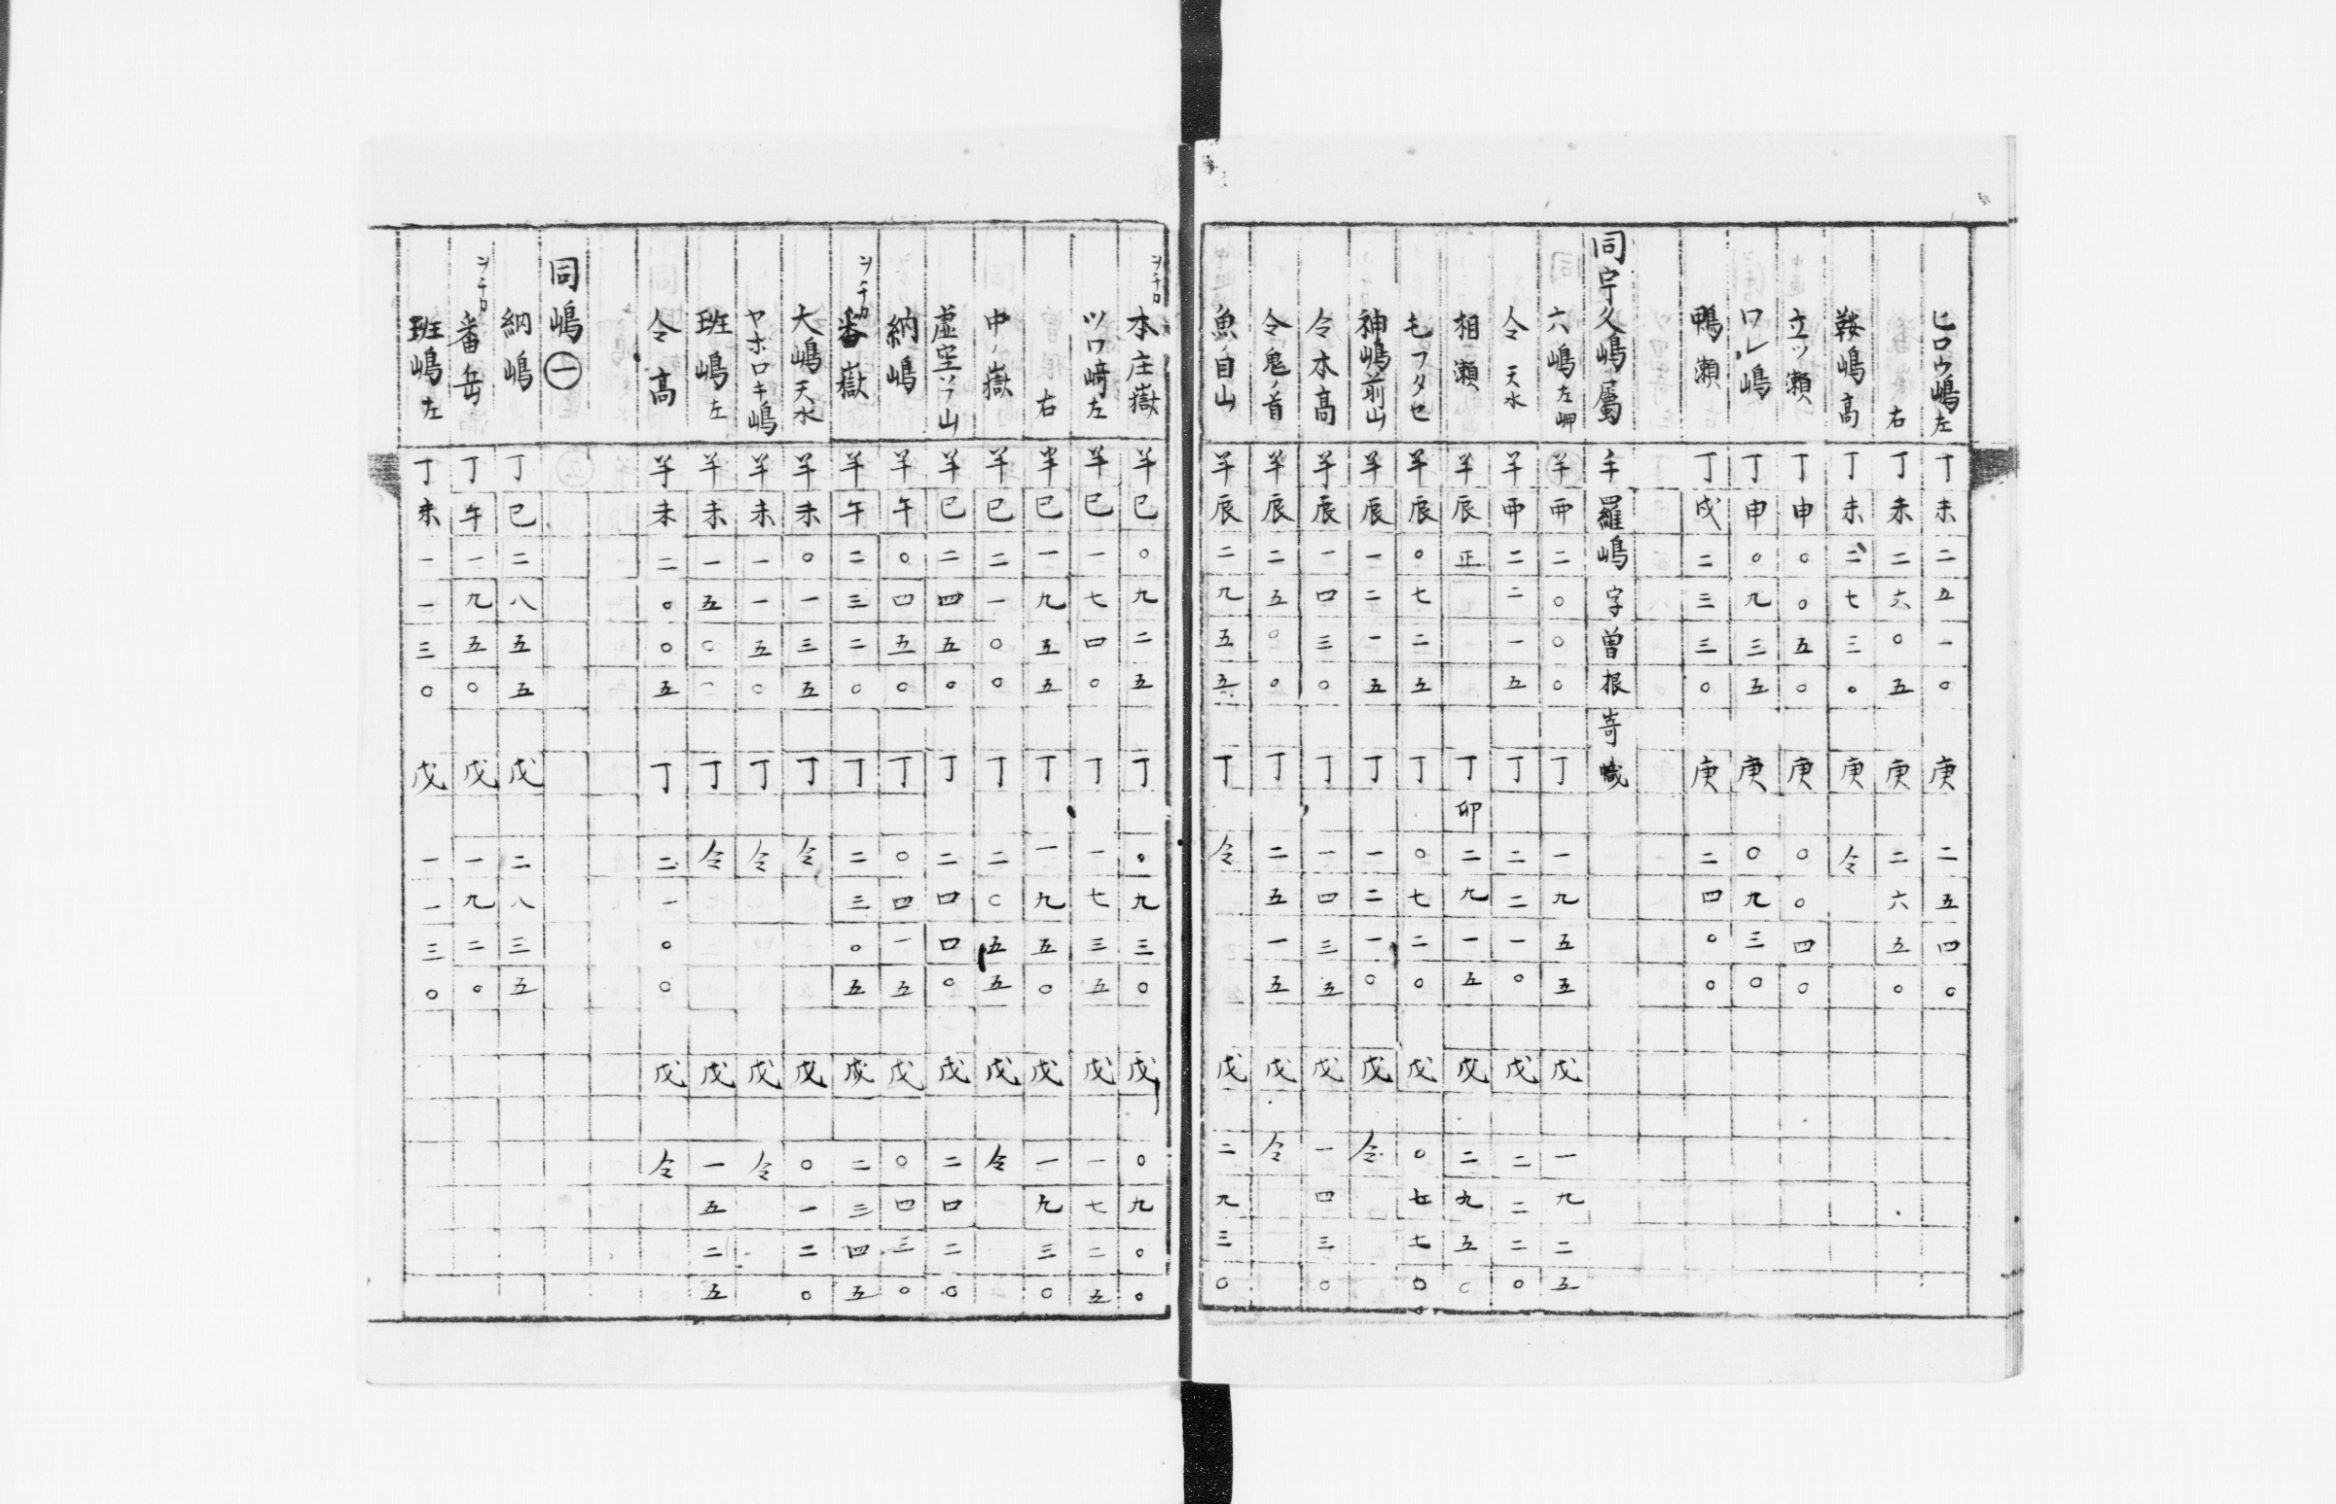 ヒロウ嶋左 丁未二五一〇 庚二五四〇
右 丁未二六〇五 庚二六五〇
鞍嶋高 丁未二七三〇 庚仝
立ツ瀬 丁申〇〇五〇 庚〇〇四〇
ワレ嶋 丁申〇九三五 庚〇九三〇
鴨瀬 丁戌二三三〇 庚二四〇〇
同宇久嶋属 手羅嶋字曽根嵜
六嶋左岬 羊丣二〇〇〇 丁一九五五 戊一九二五
仝天水 羊丣二二一五 丁二二一〇 戊二二二〇
相瀬 羊辰正 丁卯二九一五 戊二九五〇
モフタセ 羊辰〇七二五 丁〇七二〇 戊〇七七〇
神嶋前山 羊辰一二一五 丁一二一〇 戊仝
仝本高 羊辰一四三〇 丁一四三五 戊一四三〇
仝鬼ノ首 羊辰二五〇〇 丁二五一五 戊仝
魚目山 羊辰二九五五 丁仝 戊二九三〇
本庄嶽 羊巳〇九二五 丁〇九三〇 戊〇九〇〇
ツワ﨑左 羊巳一七四〇 丁一七三五 戊一七二五
右 羊巳一九五五 丁一九五〇 戊一九三〇
中ノ嶽 羊巳二一〇〇 丁二〇五五 戊仝
虚空ソノ山 羊巳二四五〇 丁二四四〇 戊二四二〇
納嶋 羊午〇四五〇 丁〇四一五 戊〇四三〇
番嶽 羊午二三二〇 丁二三〇五 戊二三四五
大嶋天水 羊未〇一三五 丁仝 戊〇一二〇
ヤホロキ嶋 羊未一一五〇 丁仝 戊仝
班嶋左 羊未一五〇〇 丁仝 戊一五二五
仝高 羊未二〇〇五 丁二一〇〇 戊仝
同嶋㊀
納嶋 丁巳二八五五 戊二八三五
番岳 丁午一九五〇 戊一九二〇
班嶋左 丁未一一三〇 戊一一三〇